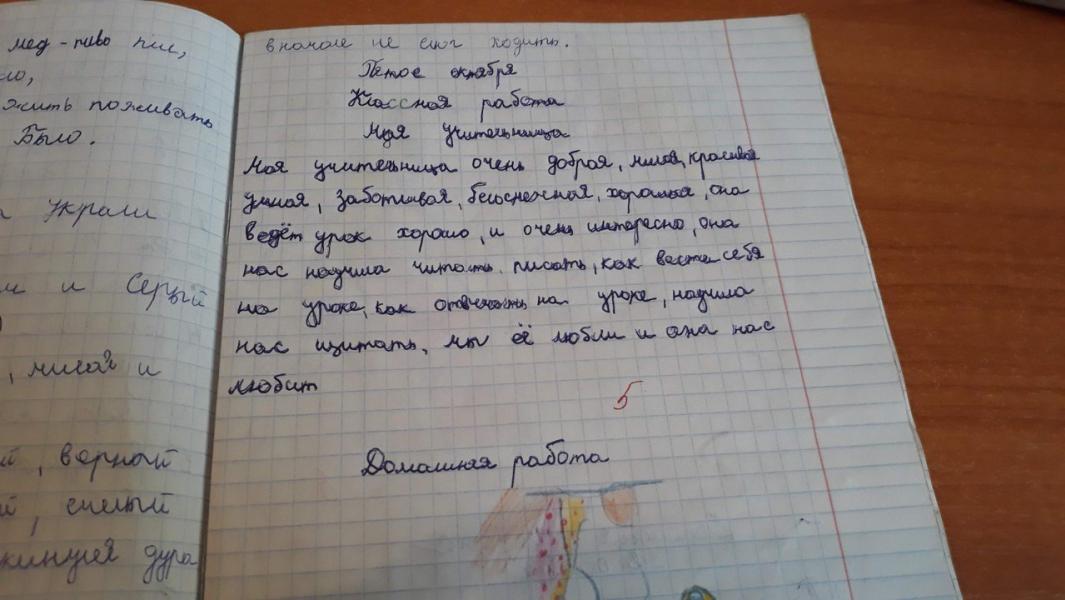 мед-пиво пил,
ло,
жить поживать
Было.
украли
и и Серый
, милая и
й, верный
й, смелый
кинулся дура
вначале не смог ходить.
Пятое октября
Классная работа
Моя учительница
Моя учительница очень добрая, милая, красивая
умная, заботливая, белоснежная, хорошая, она
ведёт урок хорошо, и очень интересно, она
нас научила читать. писать, как вести себя
на уроке, как отвечать на уроке, научила
нас щитать, мы её любли и она нас
любит
5
Домашняя работа